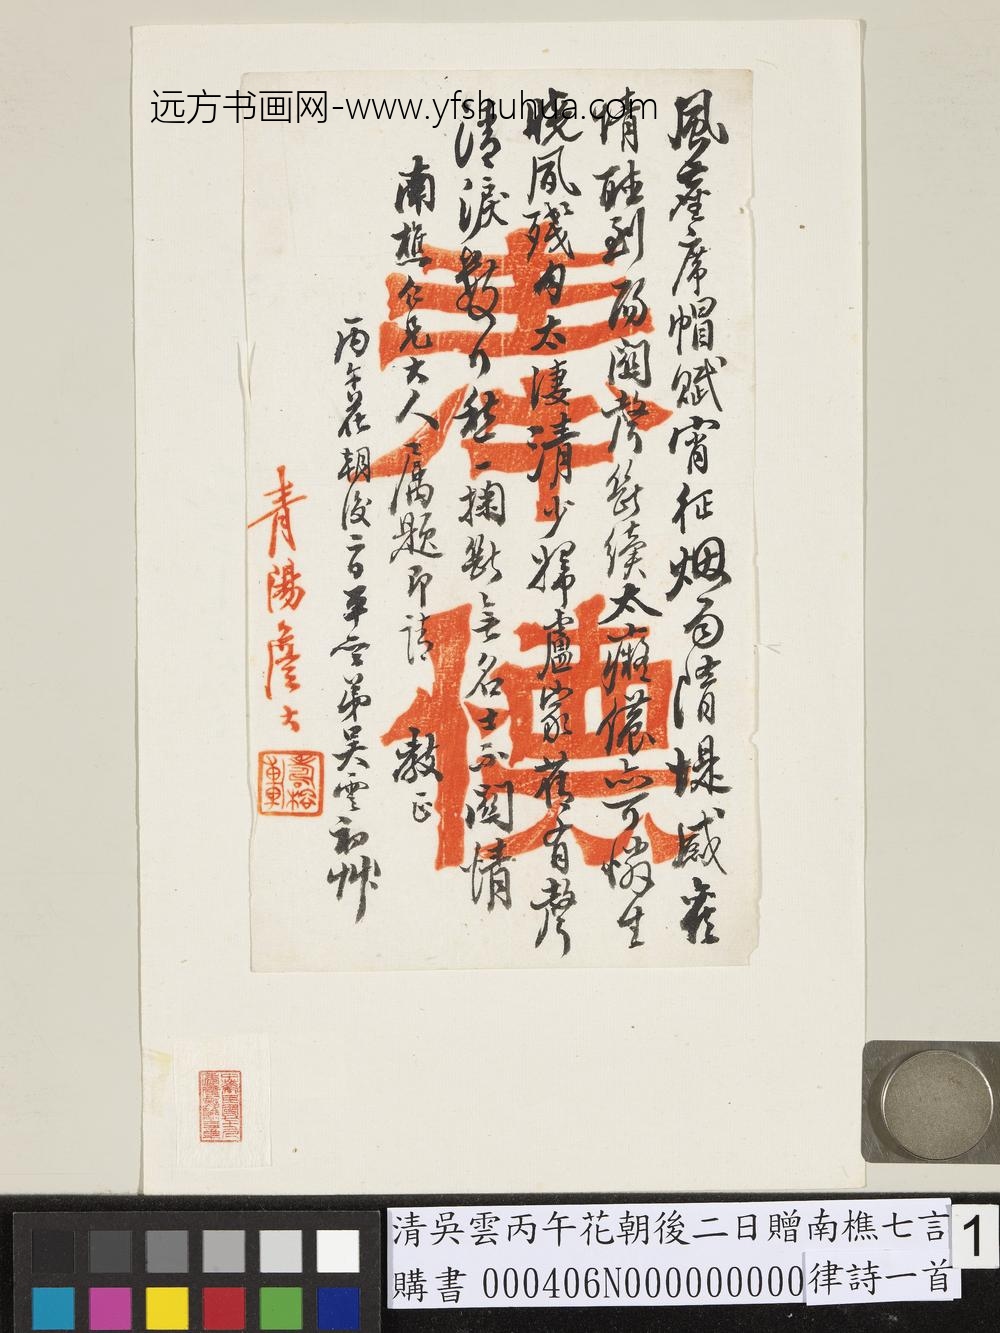 远方书画网-www.yfshuhua.com
風塵席帽賦宵征烟雨隋堤感舊
情酸到陽關聲斷續太癡儂亦可憐生
曉風殘月太淒清少婦盧家舊有聲
清淚數行愁一掬斷無名士不關情
南樵仁兄大人屬題即請 教正
丙午花朝後二日平齋弟吳雲初艸
青陽
清吳雲丙午花朝後二日贈南樵七言律詩一首
購書 000406N000000000
1